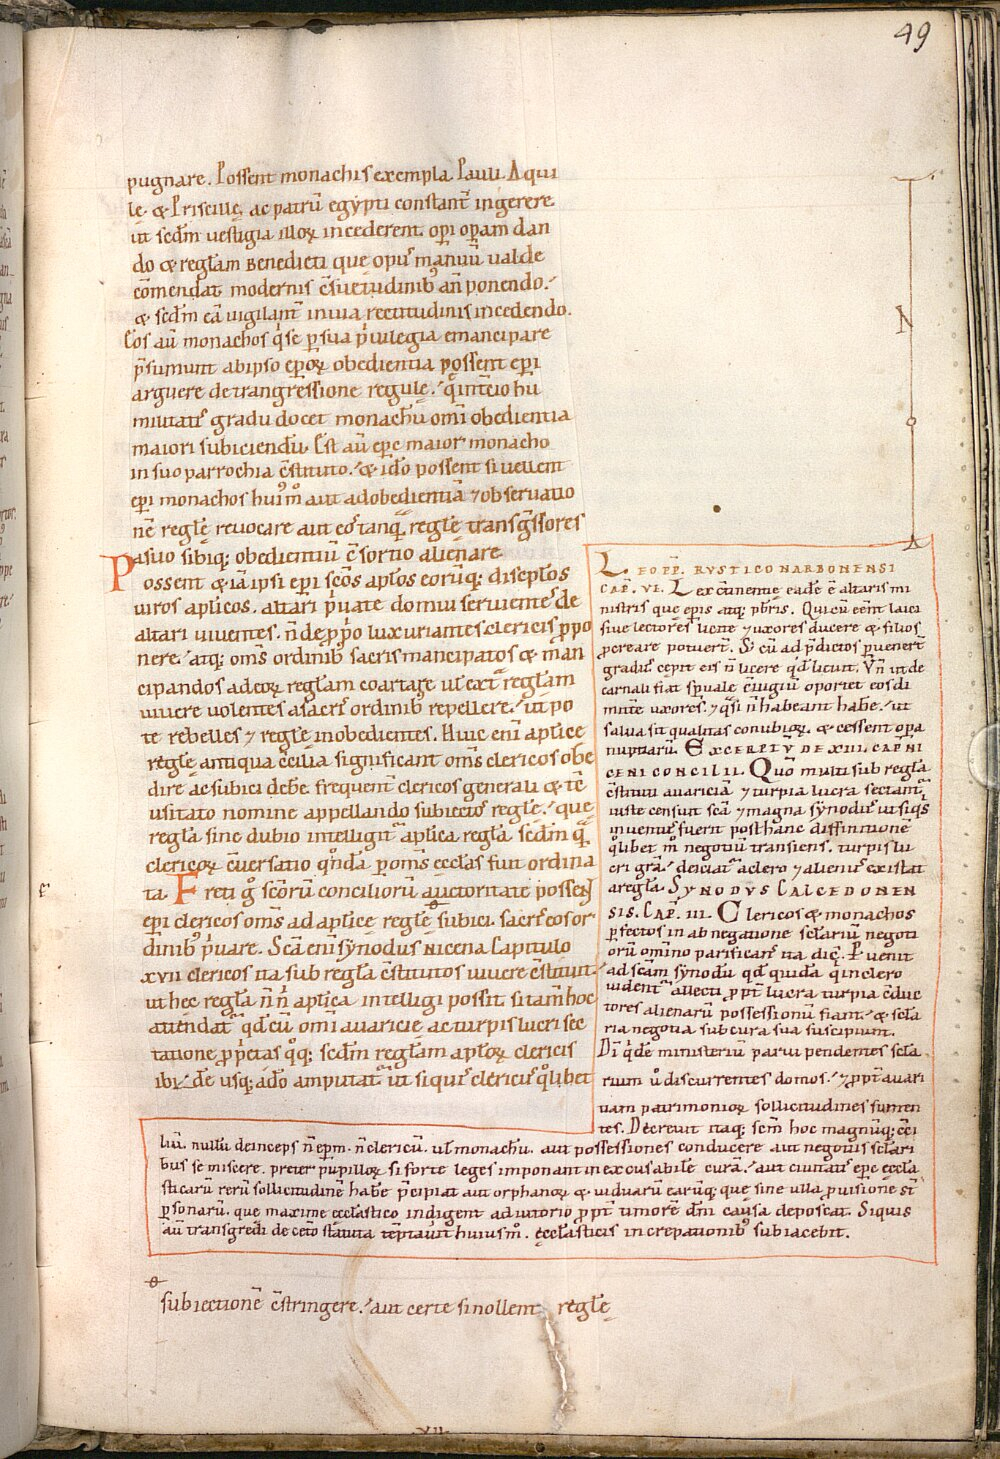 49
pugnare. Possent monachis exempla Pauli. Aqui
lę. & Priscillę. ac patrū egypti constant̄ ingerere
ut scd̄m vestigia illoꝝ incederent. opi opam dan
do & regłam Benedicti que op᾽ manuū valde
cōmendat modernis c̄suetudinib᾽ an̄ ponendo.
& scd̄m eā vigilant̄ in via rectitudinis incedendo.
Eos aū monachos q̇ se p sua p̓uilegia emancipare
p̄sumunt ab ipso ep̄oꝝ obedientia possent ep̄i
arguere de trangressione regulę. q̄ in t̄cio hu
militatis gradu docet monachū om̄i obedientia
maiori subiciendū. Est aū ep̄c maior monacho
in suo parrochia c̄stituto. & id̄o possent si vellent
ep̄i monachos hui᾽m̊ aut ad obedientiā ⁊ observatio
nē regłę revocare aut eos tanq̄ regłę transḡssores
a suo sibiq; obedientiū c̄sortio alienare.
Possent & iā ipsi ep̄i sc̄os apłos eorūq; discipłos
viros apłicos. altari p̓uate domui servientes de
altari viventes. n̄ de pp̓o luxuriantes clericis ppo
nere. atq; om̄s ordinib᾽ sacris mancipatos & man
cipandos ad eoꝝ regłam coartare uł ext̄ regłam
vivere volentes a sacris ordinib᾽ repellere. ut po
te rebelles ⁊ regłę inobedientes. Huic eni apłice
regłę antiqua c̄cilia significant om̄s clericos obe
dire ac subici deb̄e. frequent̄ clericos generali & tē
usitato nomine appellando subiectos regłę. quę
regła sine dubio intelligit̄ apłica regła scd̄m q̄
clericoꝝ c̄versatio q̊nda p om̄s eccłas fuit ordina
ta. Freti g̊ sc̄orū conciliorū auctoritate possent
ep̄i clericos om̄s ad apłice regłę subici. sacris eos or
dinib᾽ p̓uare. Sc̄a eni synodus Nicena Capitulo
xvii clericos ita sub regła c̄stitutos vivere c̄stituit
ut hec regła n̄ n̓ apłica intelligi possit si tam̄ hoc
attendat̄ qd̄ cū om̄i avaricie ac turpis lucri sec
tatione pp̓etas q̊q; scd̄m regłam apłoꝝ clericis
ibidē usq; ad̄o amputat̄ ut si quis clericus q̊libet
subiectionē c̄stringere. aut certe si nollent regłę
N
A
LEO PP. RVSTICO NARBONENSI
CAP̄. VI. Lex c̄tinentię eadē ē altaris mi
nistris que ep̄is atq; pb̄ris. Qui cū eēnt laici
sive lectores licite ⁊ uxores ducere & filios
pcreare potuert̄. S; cū ad p̄dictos pvenert̄
gradus cepit eis n̄ licere qd̄ licuit. Vn̄ ut de
carnali fiat sp̄uale c̄iugiū oportet eos di
mitt̄e uxores. ⁊ q̊si n̄ habeant hab̄e. ut
salva sit qualitas conubioꝝ. & cessent opa
nuptiarū. EXCERPTV̄ DE XVII. CAP̄ NI
CENI CONCILII. Quō multi sub regła
c̄stituti avariciā ⁊ turpia lucra sectant̄
iuste censuit sc̄a ⁊ magna synodus ut siq̇s
inventus fuerit post hanc diffinitionē
q̊libet m̊ negotiū transiens. turpis lu
cri grā. deiciat᾽ a clero ⁊ alienus existat
a regła. SYNODVS CALCEDONEN
SIS. CAP̄. III. Clericos & monachos
pfectos in abnegatione sclariū negoti
orū om̄ino parificant̄ ita dic̄. Pvenit
ad sc̄am synodū qd̄ quidā q̇ in clero
vident̄ allecti ppt̄ lucra turpia c̄duc
tores alienarū possessionū fiant. & scła
ria negotia sub cura sua suscipiunt.
Dī q̇dē ministeriū parvi pendentes scła
rium ů discurrentes domos. ⁊ ppt̄ avari
tiam patrimonioꝝ sollicitudines sumen
tes. Decrevit itaq; sc̄m hoc magnūq; c̄ci
liū. nullū deinceps n̄ ep̄m. n̄ clericū. uł monachū. aut possessiones conducere aut negotiis scłari
bus se miscere. preter pupilloꝝ si forte leges imponant inexcusabilē curā. aut civitatis ep̄c eccła
sticarū rerū sollicitudinē hab̄e p̄cipiat aut orphanoꝝ & viduarū earūq; que sine ulla pvisione st̄
psonarū. que maxime eccłastico indigent adiutorio ppt̄ timorē dn̄i causa deposcat. Siquis
aū transgredi de cet̄o statuta tēptaverit huiusm̊. ęccłasticis increpationib᾽ subiacebit.